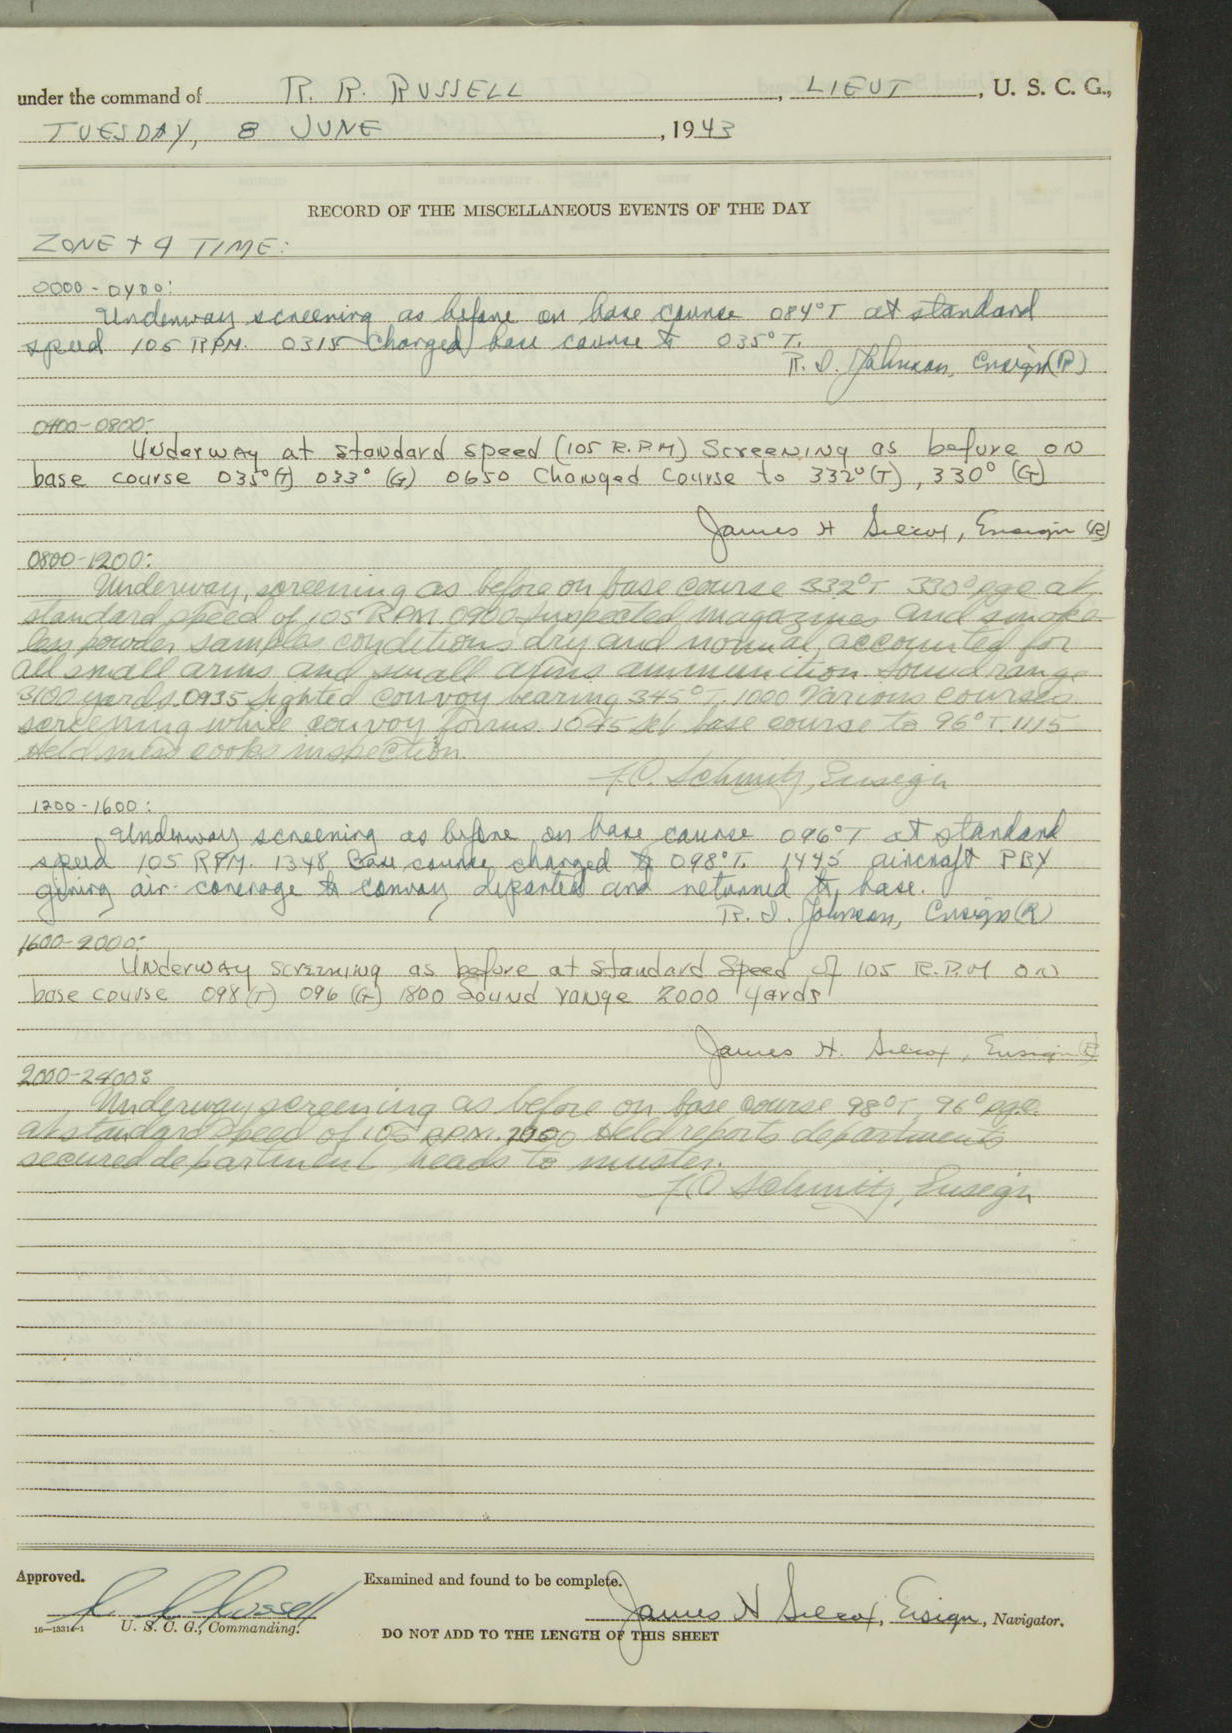 under the command of R. R. RUSSELL, LIEUT, U. S. C. G.,
TUESDAY, 8 JUNE, 1943
RECORD OF THE MISCELLANEOUS EVENTS OF THE DAY
ZONE + 9 TIME:
0000-0400:
Underway screening as before on base course 084°T at standard
speed 105 RPM. 0315 Changed base course to 035°T.
R. I. Johnson, Ensign (R)
0400-0800:
Underway at standard speed (105 R.P.M) Screening as before on
base course 035°(T) 033° (G) 0650 Changed Course to 332°(T), 330° (G)
James H Silcox, Ensign (R)
0800-1200:
Underway, screening as before on base course 332°T 330° pgc at
standard speed of 105 RPM. 0900 Inspected magazines and smoke-
less powder samples conditions dry and normal, accounted for
all small arms and small arms ammunition. Sound range
3100 yards. 0935 Sighted convoy bearing 345°T. 1000 Various courses
screening while convoy forms. 1045 set base course to 96°T. 1115
Held mess cooks inspection.
F.O. Schmitz, Ensign
1200-1600:
Underway screening as before on base course 096°T at standard
speed 105 RPM. 1348 Base course changed to 098°T. 1445 aircraft PBY
giving air coverage to convoy departed and returned to base.
R. I. Johnson, Ensign (R)
1600-2000:
Underway screening as before at Standard Speed of 105 R.P.M on
base course 098 (T) 096 (G) 1800 Sound range 2000 yards
James H. Silcox, Ensign (R)
2000-2400:
Underway, screening as before on base course 98°T, 96° pgc
at standard speed of 105 RPM. Held reports departments
secured department heads to muster.
F.O Schmitz, Ensign
Approved.
Examined and found to be complete.
R. R. Russell
James H Silcox, Ensign, Navigator.
U. S. C. G., Commanding.
16—13314-1
DO NOT ADD TO THE LENGTH OF THIS SHEET